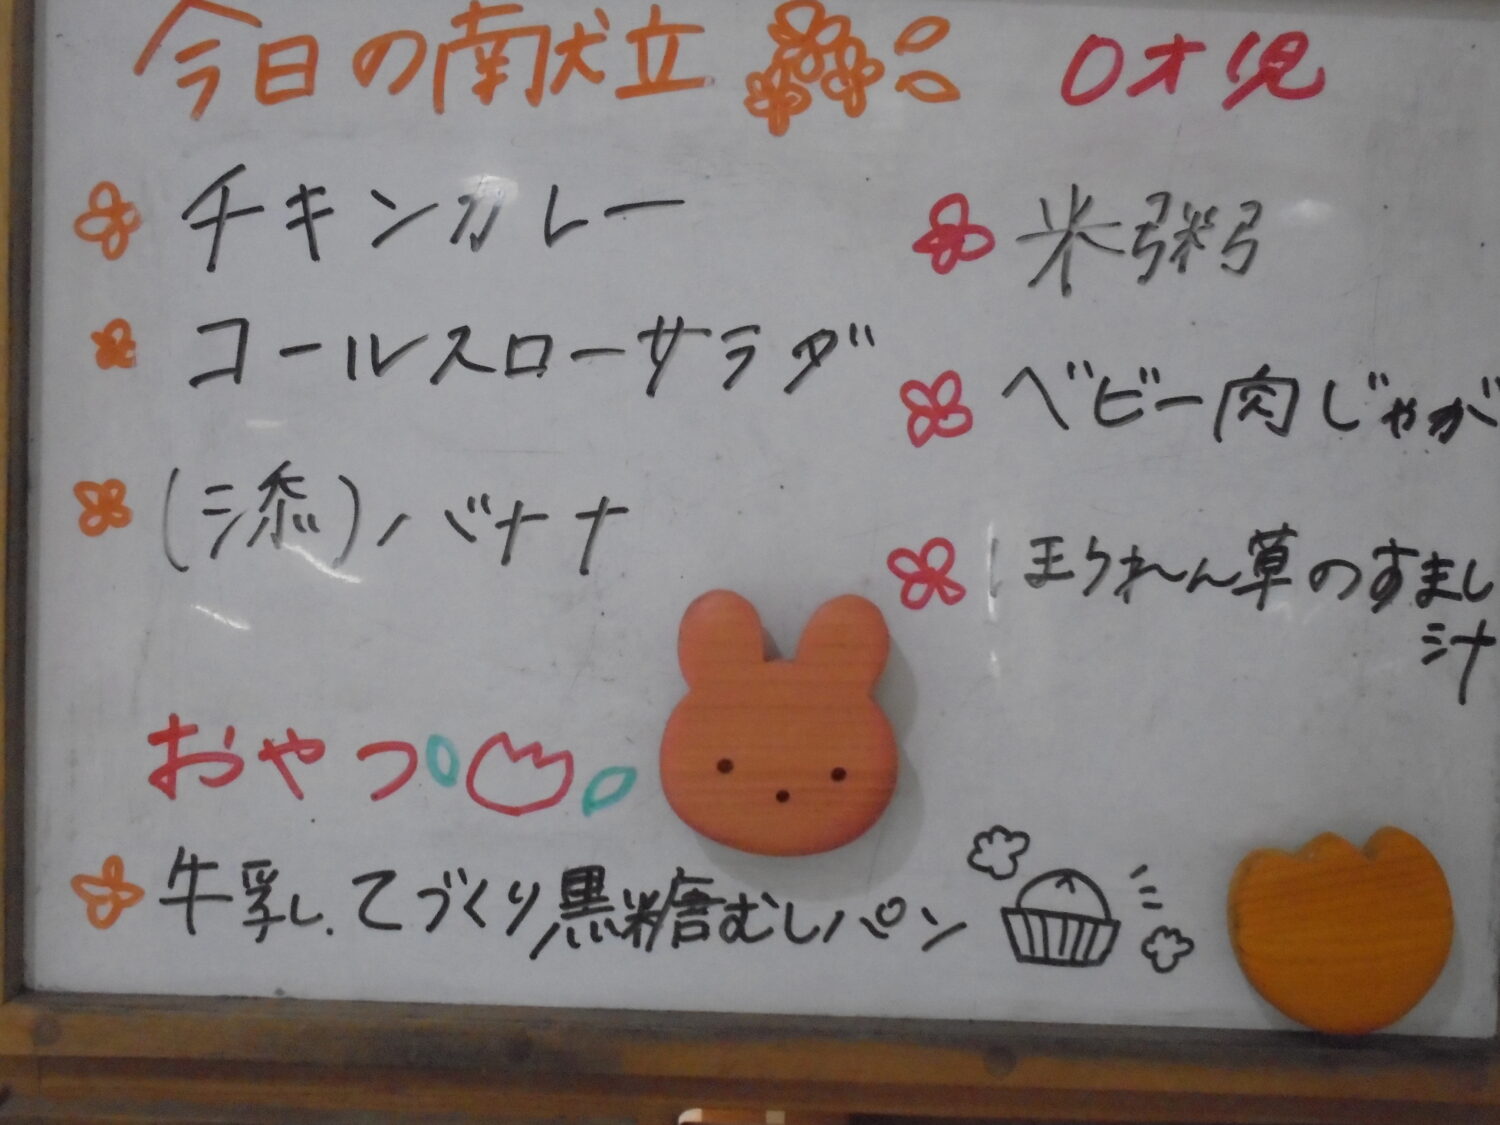 今日の献立
チキンカレー
コールスローサラダ
(添)バナナ
0才児
米粥
ベビー肉じゃが
ほうれん草のすまし
汁
おやつ
牛乳.てづくり黒糖むしパン